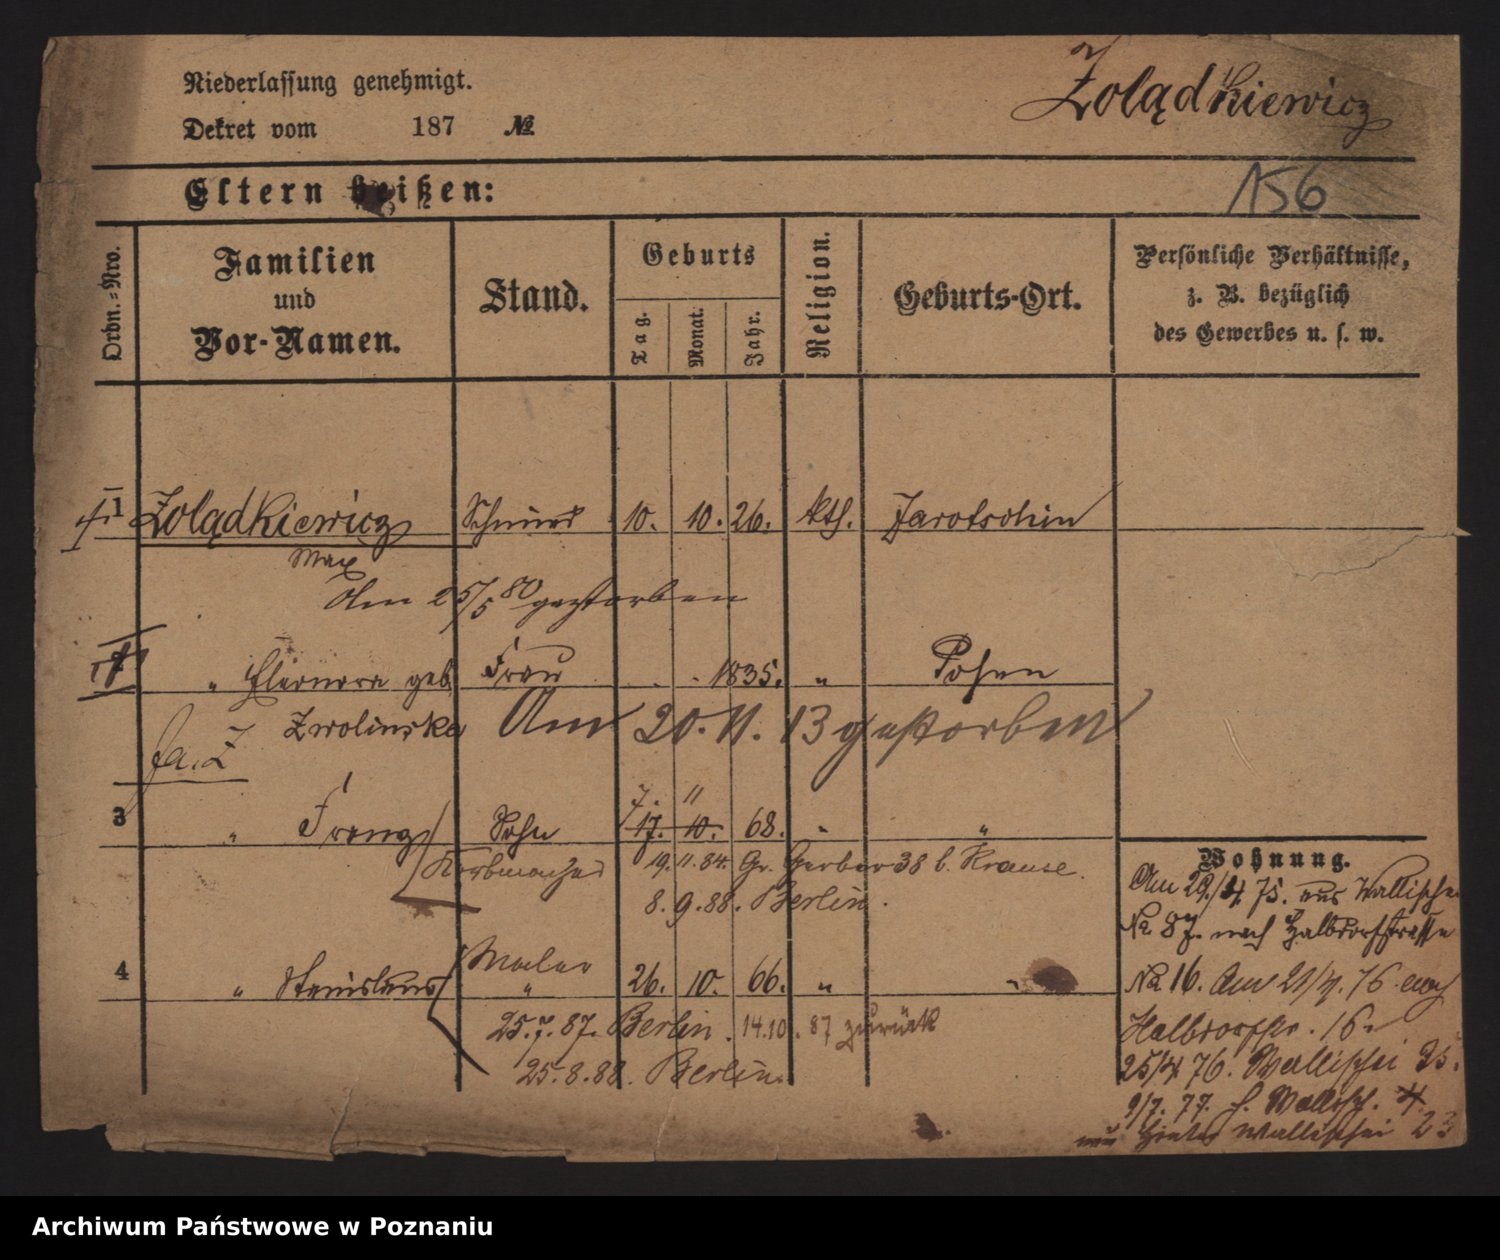 Niederlassung genehmigt.
Dekret vom 187 №
Żolądkiewicz
156
Eltern heißen:
Ordn.=Nro.
Familien
und
Vor-Namen.
Stand.
Geburts
Tag.
Monat.
Jahr.
Religion.
Geburts-Ort.
Persönliche Verhältnisse,
z. B. bezüglich
des Gewerbes u. s. w.
1 Żolądkiewicz 10. 10. 26. kth. Jarotschin
Max
Am 25/5 80 gestorben
" Eleonora geb. Frau 1835. " Posen
Zwolinska Am 20. 11. 13 gestorben
7. 11
3 " Franz Sohn 17. 10. 68. " "
Korbmacher 19. 11. 84. Gr. Gerber 38 b. Krause.
8. 9. 88. Berlin.
Maler
4 " Stanislaus " 26. 10. 66. " "
25. 7. 87. Berlin. 14.10. 87 zurück
25. 8. 88. Berlin.
Wohnung.
Am 29./4 75. aus Wallischei
No 87. nach Halbdorfstrasse
No 16. Am 76
Halbdorfstr. 16.
25/4 76. Wallischei
9/7. 77. H. Wallisch. 4
Hinter Wallischei 23
Archiwum Państwowe w Poznaniu